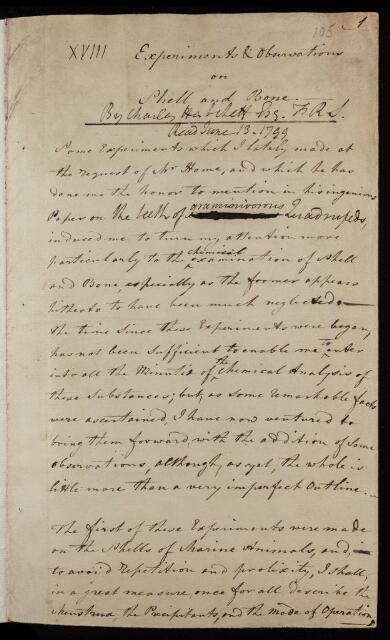 105
1
XVIII Experiments & Observations
on
Shell and Bone.
By Charles Hatchett Esq. F.R.S.
Read June 13. 1799
Some Experiments which I lately made at
the request of Mr Home, and which he has
done me the honor to mention in his ingenious
Paper on the teeth of graminivorous Quadrupeds,
induced me to turn my attention more
particularly to the chemical examination of Shell
and Bone, especially as the former appears
hitherto to have been much neglected.—
The time since these Experiments were began,
has not been sufficient to enable me to enter
into all the Minutiæ of the Chemical Analysis of
these Substances; but, as some remarkable facts
were ascertained, I have now ventured to
bring them forward, with the addition of some
observations, although, as yet, the whole is
little more than a very imperfect Outline.—
The first of these Experiments were made
on the Shells of Marine Animals, and,—
to avoid repetition and prolixity, I shall,
in a great measure, once for all describe the
Menstrua, the Precipitants, and the mode of Operation